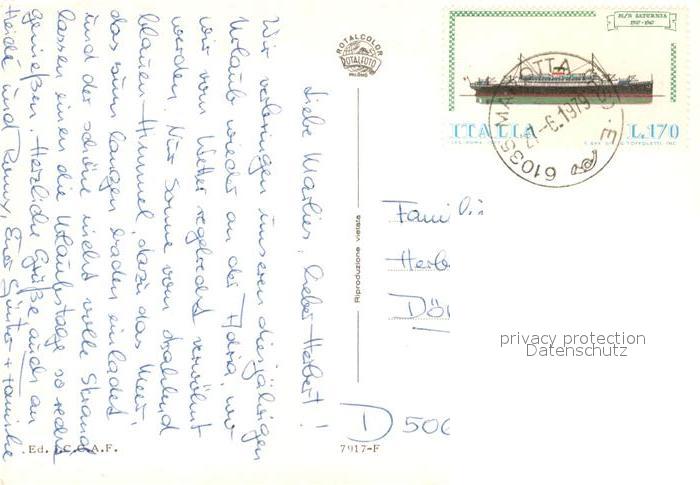 Liebe Marlies, lieber Herbert!
Wir verbringen unseren diesjährigen
Urlaub wieder an der Adria, wo
wir vom Wetter regelrecht verwöhnt
werden. Nur Sonne vom strahlend
blauen Himmel, dazu das Meer,
das zum langen baden einladet
und der schöne nicht volle Strand
lassen einen die Urlaubstage so recht
genießen. Herzliche Grüße auch an
Heidi und Euer Günter + Familie
ROTALCOLOR
ROTALFOTO
MILANO
Riproduzione vietata
. Ed. A.F.
7917-F
M/N SATURNIA
ITALIA
L.170
61035 MAROTTA
-6.1979
Fami
Herb
Dör
D 506
privacy protection
Datenschutz